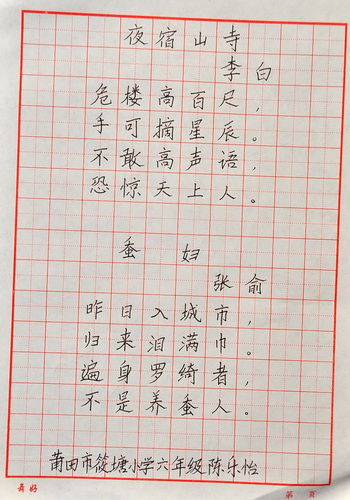 夜宿山寺
李白
危楼高百尺，
手可摘星辰。
不敢高声语，
恐惊天上人。
蚕妇
张俞
昨日入城市，
归来泪满巾。
遍身罗绮者，
不是养蚕人。
莆田市筱塘小学六年级陈乐怡
第 页